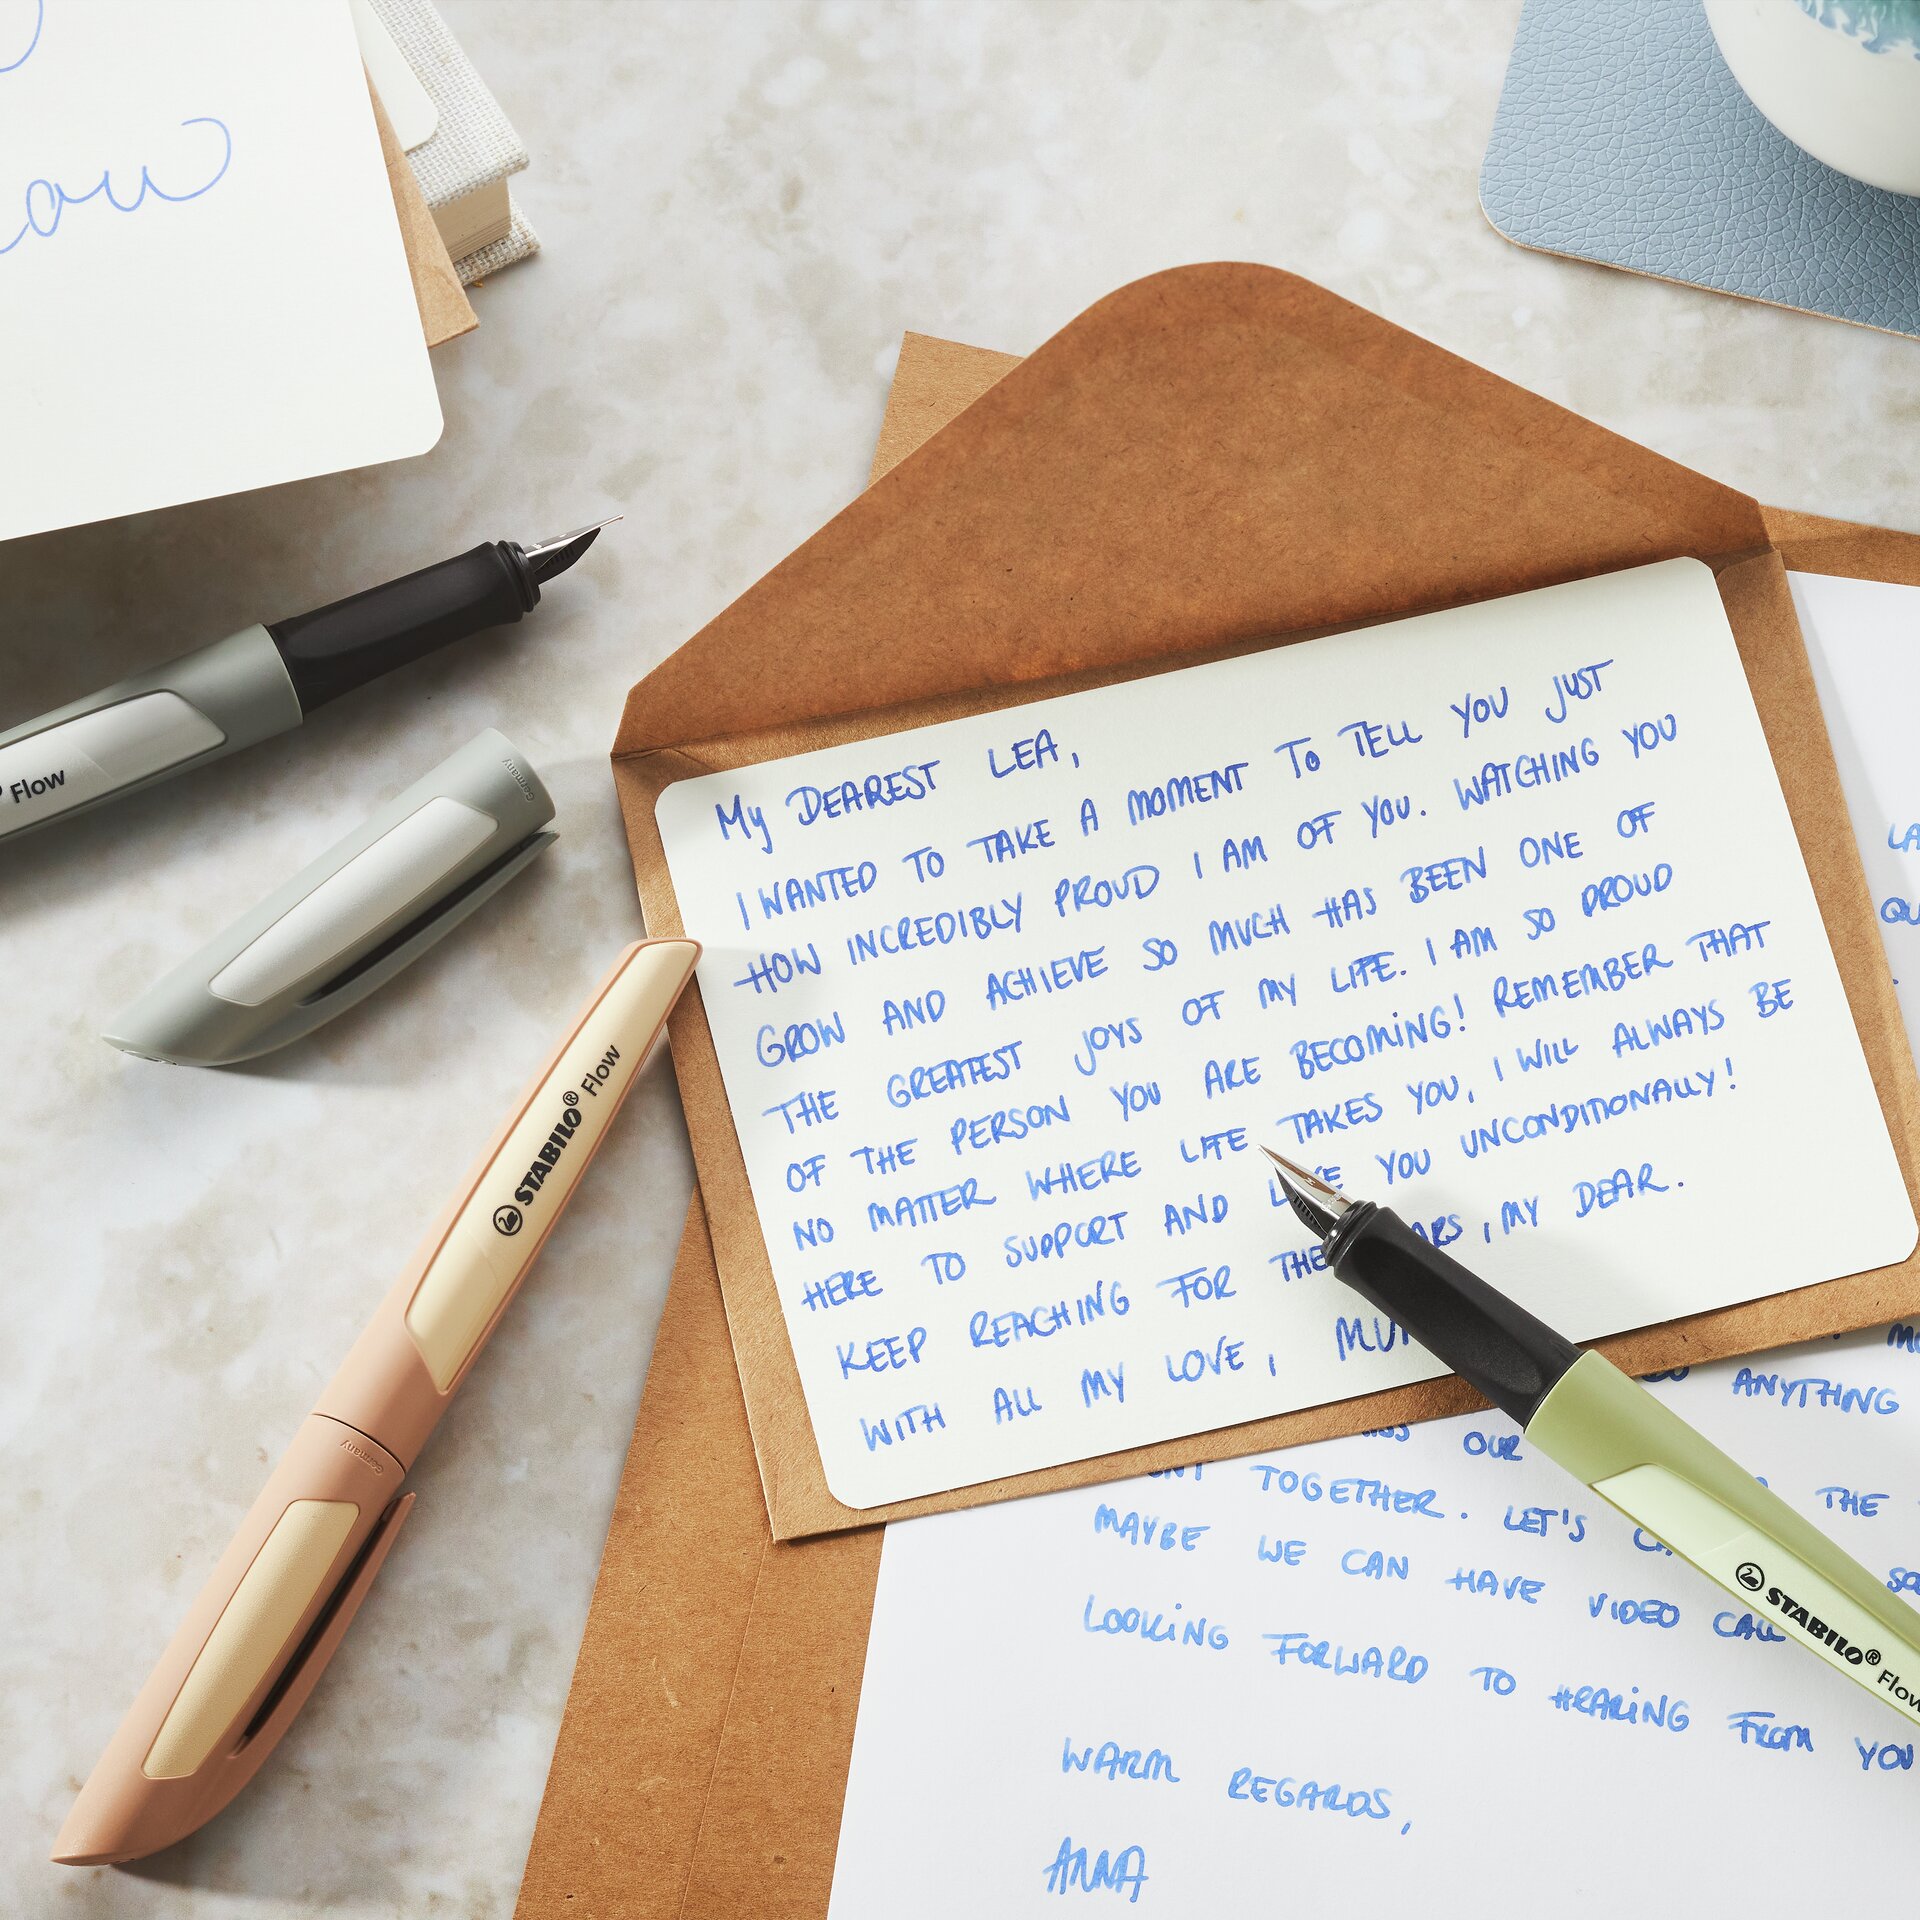 Flow
Germany
STABILO® Flow
Germany
MY DEAREST LEA,
I WANTED TO TAKE A MOMENT TO TELL YOU JUST
HOW INCREDIBLY PROUD I AM OF YOU. WATCHING YOU
GROW AND ACHIEVE SO MUCH HAS BEEN ONE OF
THE GREATEST JOYS OF MY LIFE. I AM SO PROUD
OF THE PERSON YOU ARE BECOMING! REMEMBER THAT
NO MATTER WHERE LIFE TAKES YOU, I WILL ALWAYS BE
HERE TO SUPPORT AND YOU UNCONDITIONALLY!
KEEP REACHING FOR THE , MY DEAR.
WITH ALL MY LOVE,
ANYTHING
OUR THE
TOGETHER. LET'S
MAYBE WE CAN HAVE VIDEO CALL
LOOKING FORWARD TO HEARING FROM YOU
WARM REGARDS,
ANNA
STABILO® Flow